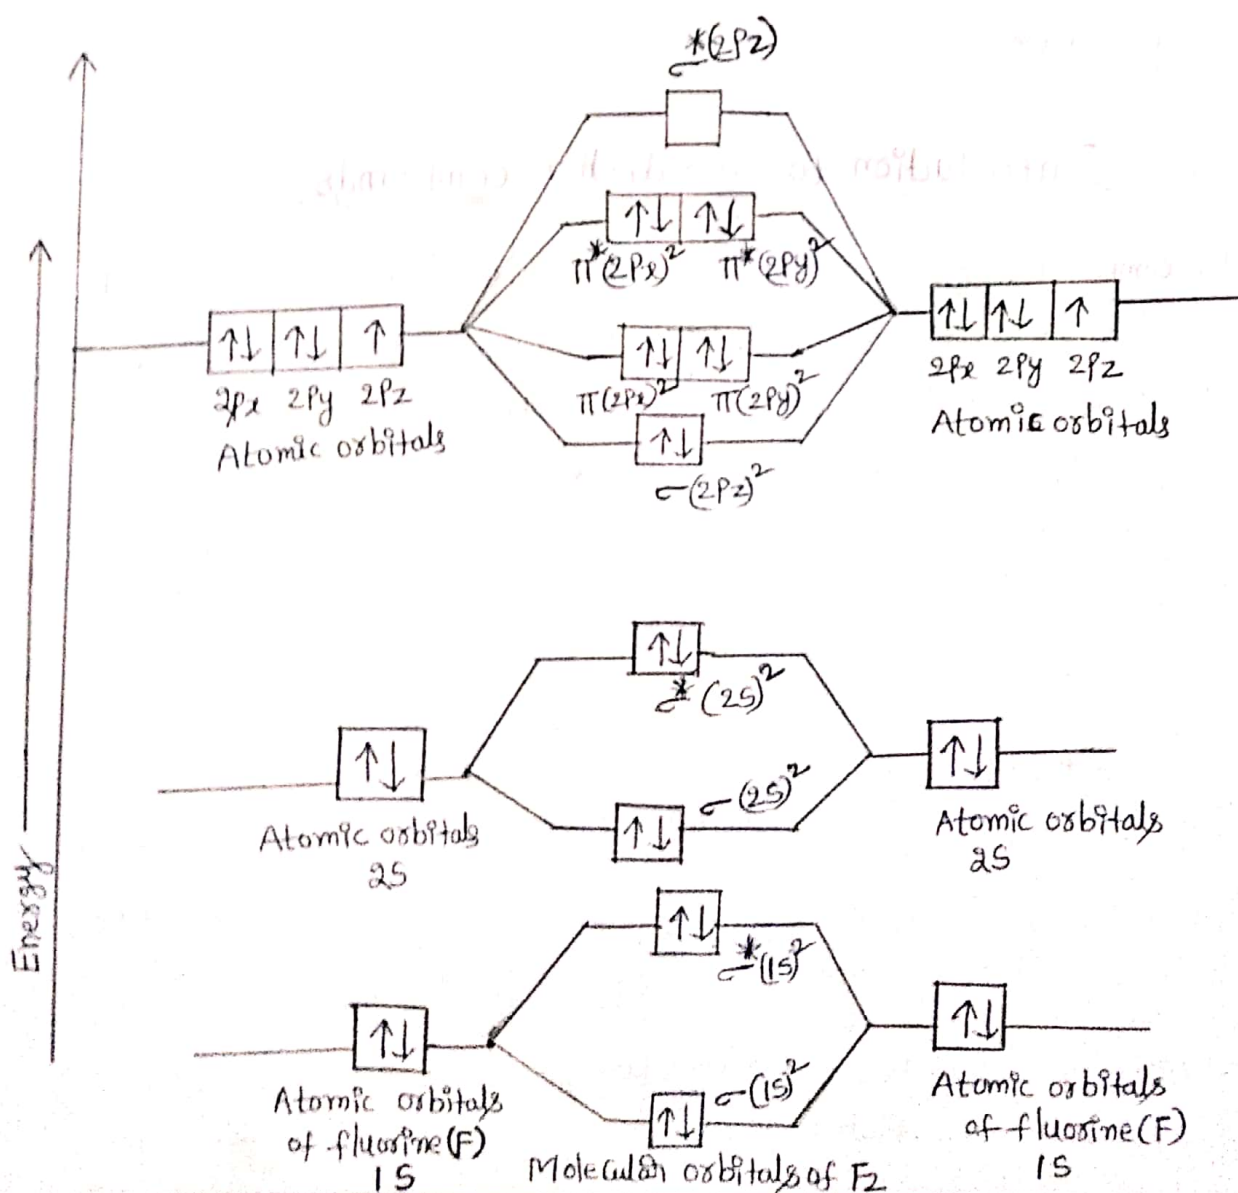 σ*(2Pz)
↑↓ ↑↓
π*(2Px)² π*(2Py)²
↑↓ ↑↓ ↑
2Px 2Py 2Pz
Atomic orbitals
↑↓ ↑↓
π(2Px)² π(2Py)²
↑↓
σ(2Pz)²
↑↓ ↑↓ ↑
2Px 2Py 2Pz
Atomic orbitals
↑↓
σ*(2S)²
↑↓
Atomic orbitals
2S
σ(2S)²
↑↓
↑↓
Atomic orbitals
2S
Energy
↑↓
σ*(1S)²
↑↓
Atomic orbitals
of fluorine(F)
1S
σ(1S)²
↑↓
Molecular orbitals of F2
↑↓
Atomic orbitals
of fluorine(F)
1S